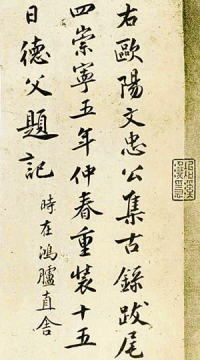 右歐陽文忠公集古錄跋尾
四崇寧五年仲春重裝十五
日德父題記
時在鴻臚直舍